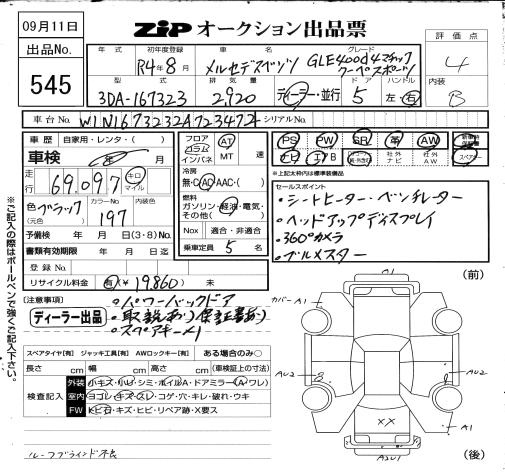 09月11日
ZIP オークション出品票
出品No.
545
評価点
4
内装
B
年式 初年度登録 車名 グレード
R4年8月 メルセデスベンツ GLE400d4マチック
クーペスポーツ
型式 排気量 ドア ハンドル
3DA-167323 2,920 ディーラー・並行 5 左・右
車台No. W1N1673232A723472 シリアルNo.
車歴 自家用・レンタ・( )
車検 年 月
走行 69,097 キロ マイル
色 ブラック (元色) カラーNo. 197 内装色
予備検 年 月 日(3・8)No.
書類有効期限 年 月 日
登録No.
リサイクル料金 有(¥19,860) 未
フロア コラム インパネ AT MT 速
冷房 無・C・AC・AAC・( )
燃料 ガソリン・軽油・電気・その他( )
Nox 適合・非適合
乗車定員 5 名
PS PW SR 革 AW 新車時保証書
ナビ TV 社外ナビ 社外AW スペアキー
※上記太枠内は標準装備品
セールスポイント
・シートヒーター・ベンチレーター
・ヘッドアップディスプレイ
・360°カメラ
・ブルメスター
(注意事項)
ディーラー出品
・パワーバックドア
・取説あり(保証書あり)
・スペアキー×1
スペアタイヤ[有] ジャッキ工具[有] AWロックキー[有] ある場合のみ○
長さ cm 幅 cm 高さ cm (車検証上の寸法)
検査記入
外装 小キズ・小ヘコ・シミ・ホイルA・ドアミラー(A・ワレ)
室内 ヨゴレ・キズ・スレ・コゲ・穴・キレ・破れ・ウキ
FW トビ石・キズ・ヒビ・リペア跡・X要ス
ルーフブラインド不良
※ご記入の際はボールペンで強くご記入下さい。
(前)
カバーA1
A1
AU2
AU2
A1
XX
AU1
(後)